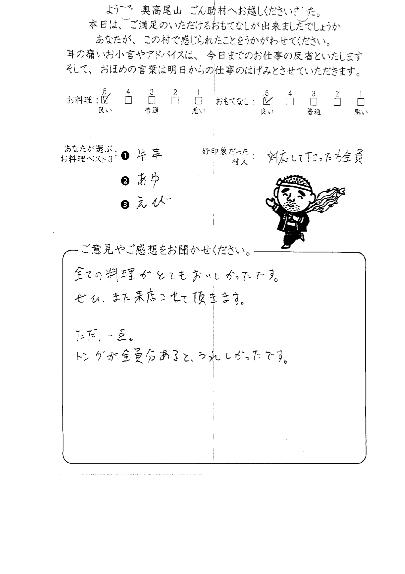 ようこそ 奥高尾山 ごん助村へお越しくださいました。
本日は、ご満足のいただけるおもてなしが出来ましたでしょうか
あなたが、この村で感じられたことをうかがわせてください。
耳の痛いお小言やアドバイスは、今日までのお仕事の反省といたします
そして、おほめの言葉は明日からの仕事のはげみとさせていただきます。
お料理: 5 4 3 2 1 おもてなし: 5 4 3 2 1
良い 普通 悪い 良い 普通 悪い
あなたが選ぶ、
お料理ベスト3
❶ 牛串
❷ あゆ
❸ えび
好印象だった
村人 : 対応して下さった方全員
ご意見やご感想をお聞かせください。
全ての料理がとてもおいしかったです。
ぜひ、また来店させて頂きます。
ただ、一点。
トングが全員分あると、うれしかったです。